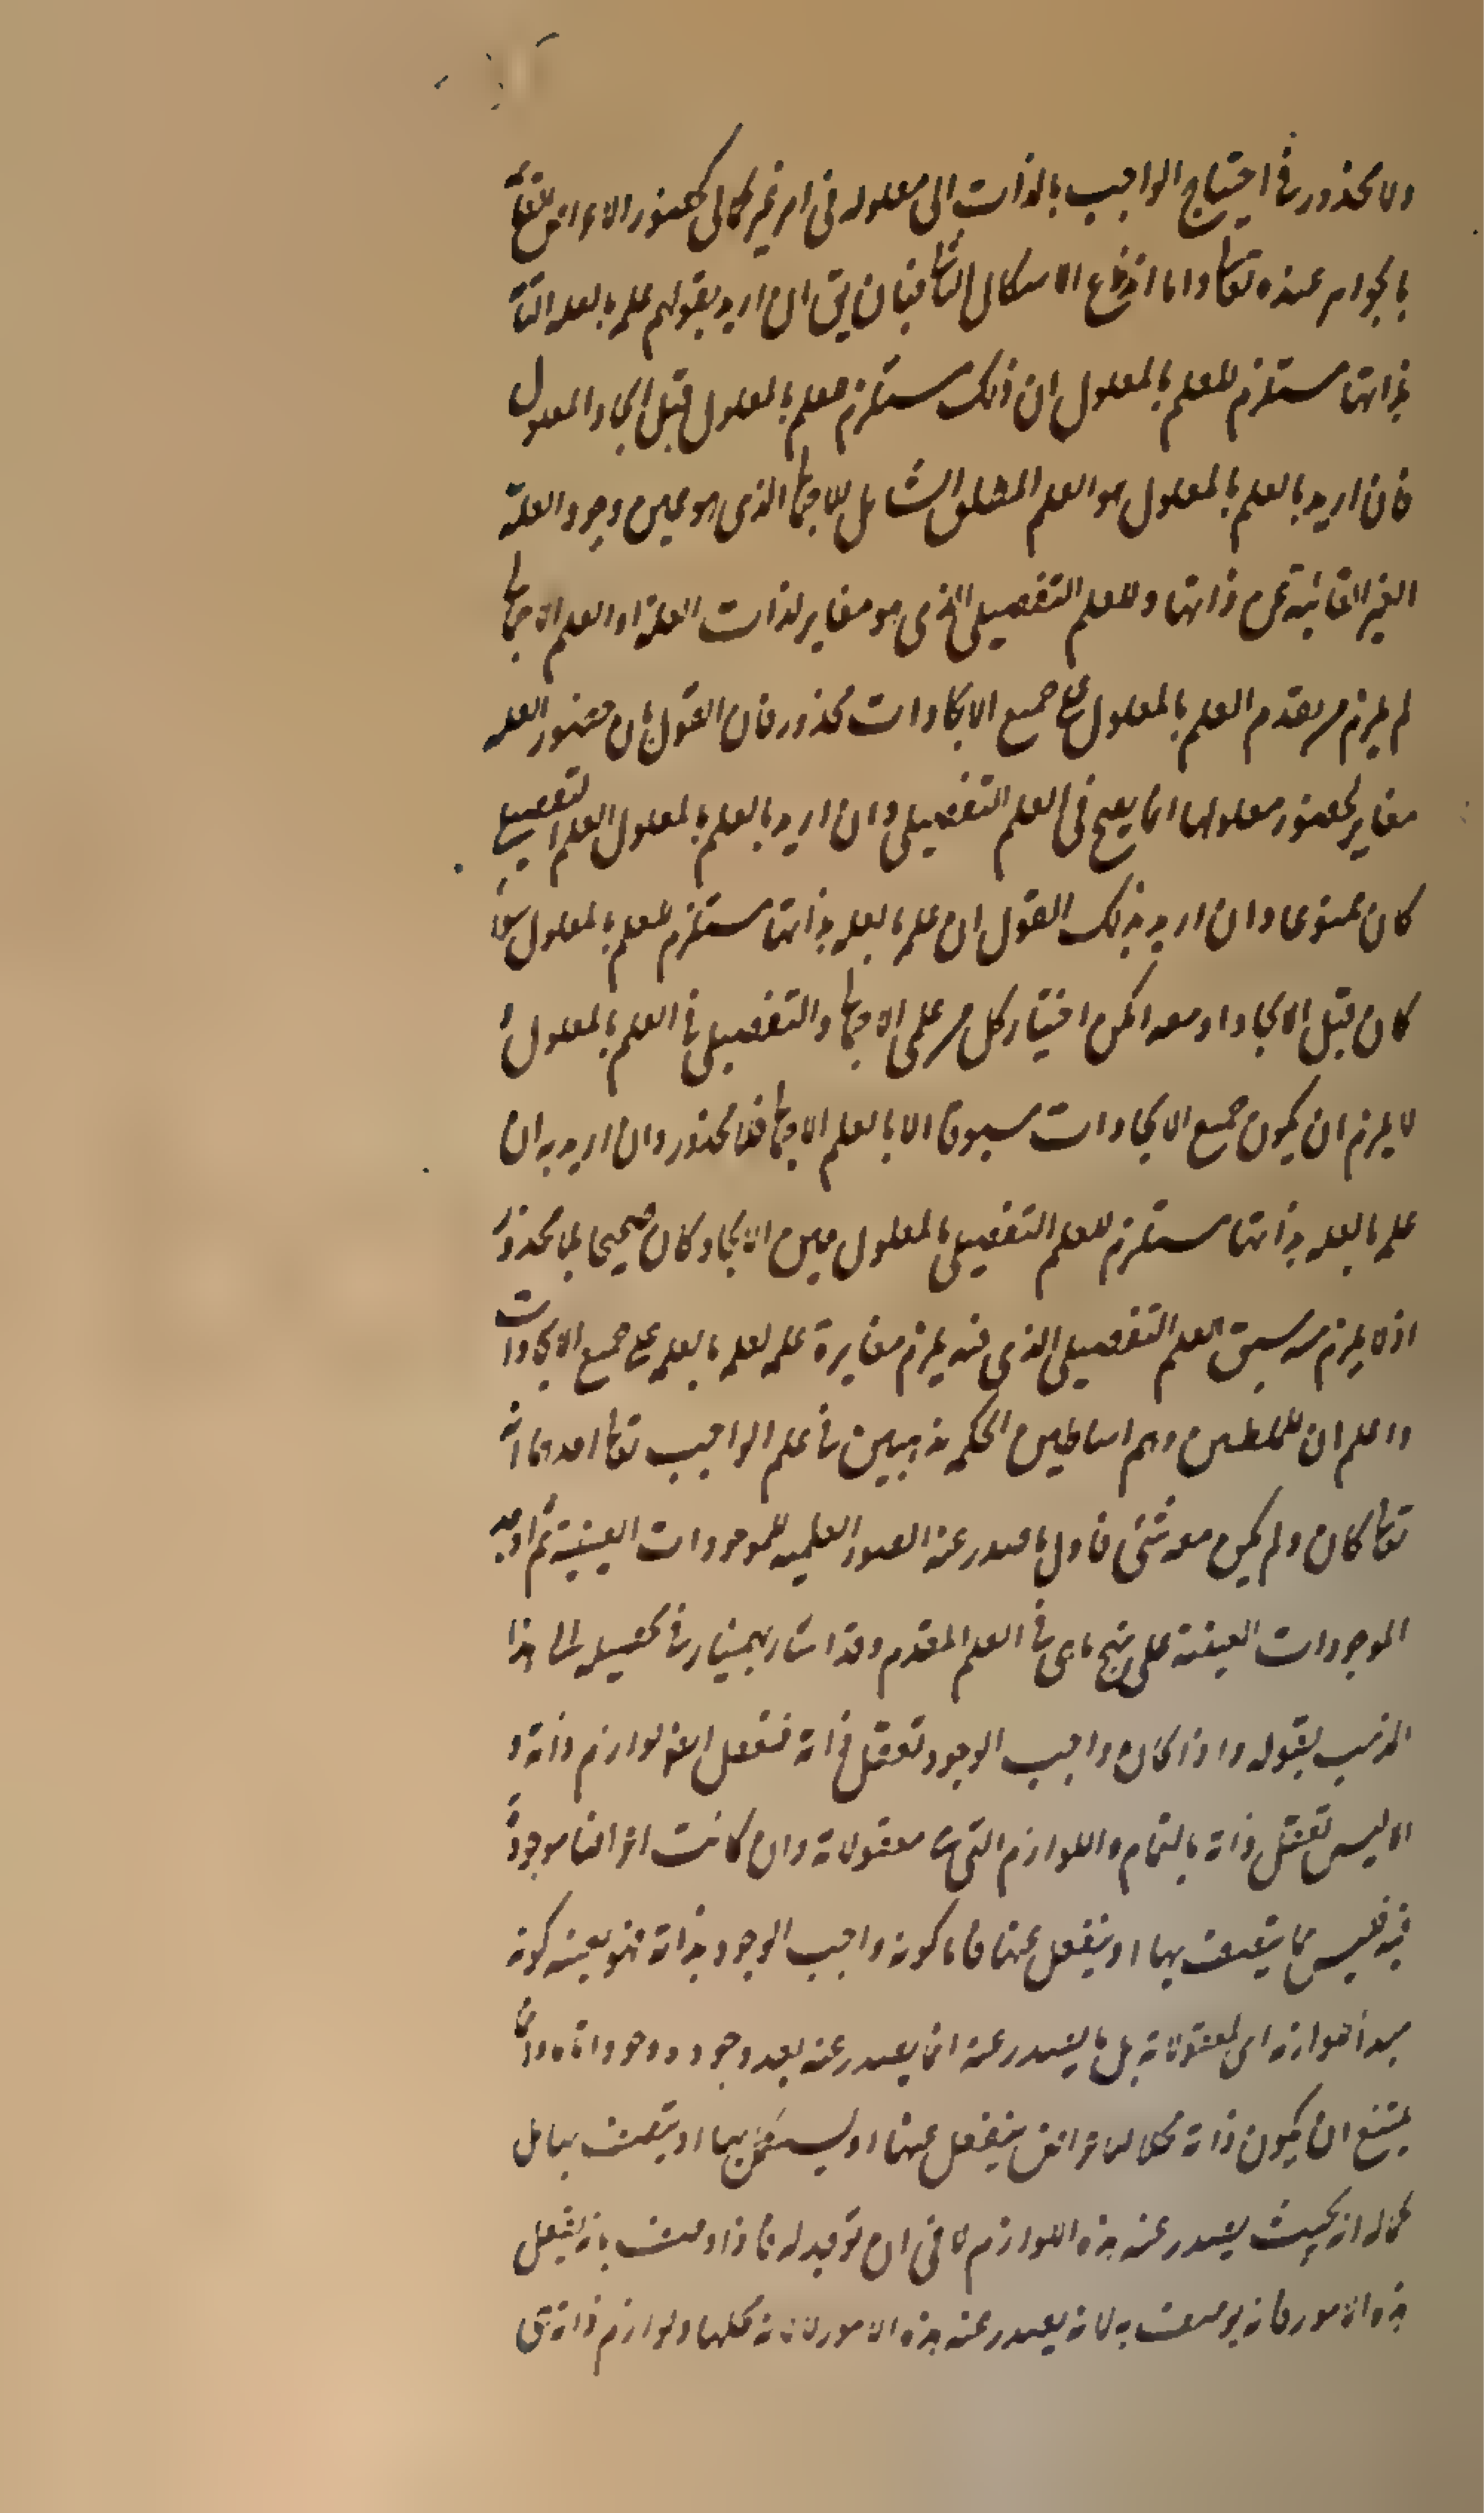 ولا محذور فى احتياج الواجب بالذات الى معلوله فى امر غير كمالى كحضور الاعراض القائمة
بالجواهر عنده تعا واما اندفاع الاشكال الثا فبان يق ان اريد بقولهم علم بالعلة التامة
بذاتها مستلزم للعلم بالمعلول ان ذلك مستلزم للعلم بالمعلول قبل ايجاد المعلول
فان اريد بالعلم بالمعلول هو العلم المطلق الشامل للاجما الذى هو عين وجود العلة
الغير الغائبة عن ذاتها وللعلم التفصيلى الذى هو مغاير لذات العلة او العلم الاجما
لم يلزم من تقدم العلم بالمعلول على جميع الايجادات محذور فان القول بان حضور العلة
مغاير لحضور معلولها انما يصح فى العلم التفصيلى وان اريد بالعلم بالمعلول العلم التفصيلى
كان ممنوعا وان اريد بذلك القول ان علم بالعلة بذاتها مستلزم للعلم بالمعلول سواء
كان قبل الايجاد او معه امكن اختيار كل من علمى الاجما والتفصيلى فى العلم بالمعلول
لا يلزم ان يكون جميع الايجادات مسبوقا الا بالعلم الاجما فلا محذور وان اريد به ان
علم بالعلة بذاتها مستلزم للعلم التفصيلى بالمعلول حين الايجاد كان صحيحا بلا محذور
اذ لا يلزم منه سبق العلم التفصيلى الذى فيه يلزم مغايرة علم العلة بالعلة على جميع الايجادات
واعلم ان وهم اساطين الحكمة مذهبين فى علم الواجب تعا احدهما انه
تعا كان ولم يكن معه شئى فاول ما صدر عنه الصور العلمية للموجودات العينية ثم اوجد
الموجودات العينية على نهج ما هى فى العلم المقدم وقد اشار بهمنيار فى تحصيله الى هذا
المذهب بقوله واذا كان واجب الوجود تعقل ذاته فتعقل ايضا لوازم ذاته و
الا ليس تعقل ذاته بالتمام واللوازم التى هى معقولاته وان كانت اعراضا موجودة
فيه فليس مما يتصف بها او ينفعل عنها فاما كونه واجب الوجود بذاته فهو بعينه كونه
مبدأ للوازمه اى لمعقولاته بل ما يصدر عنه انما يصدر عنه بعد وجوده وجودا تاما وانما
يمتنع ان يكون ذاته محلا لاعراض ينفعل عنها او يستكمل بها او يتصف بها بل
كماله انه بحيث يصدر عنه هذه اللوازم لا فى ان توجد له فاذا وصف بانه يعقل
هذه الامور فانه يوصف به لانه يصدر عنه هذه الامور لا لانه محلها ولوازم ذاته هى